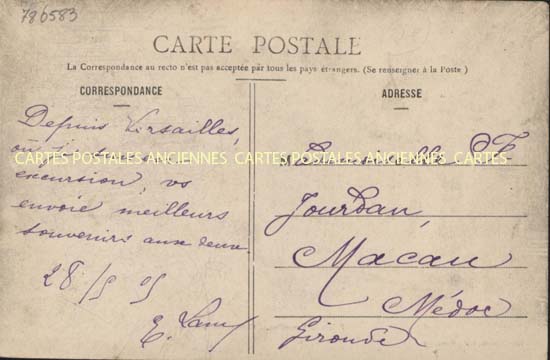 786583
CARTE POSTALE
La Correspondance au recto n'est pas acceptée par tous les pays étrangers. (Se renseigner à la Poste)
CORRESPONDANCE
ADRESSE
Depuis Versailles,
CARTES POSTALES ANCIENNES CARTES POSTALES ANCIENNES CARTES
excursion, vs
envoie meilleurs
souvenirs aux deux
28/9 05
E.
Mademoiselle
Jourdan,
Macau
Médoc
Gironde